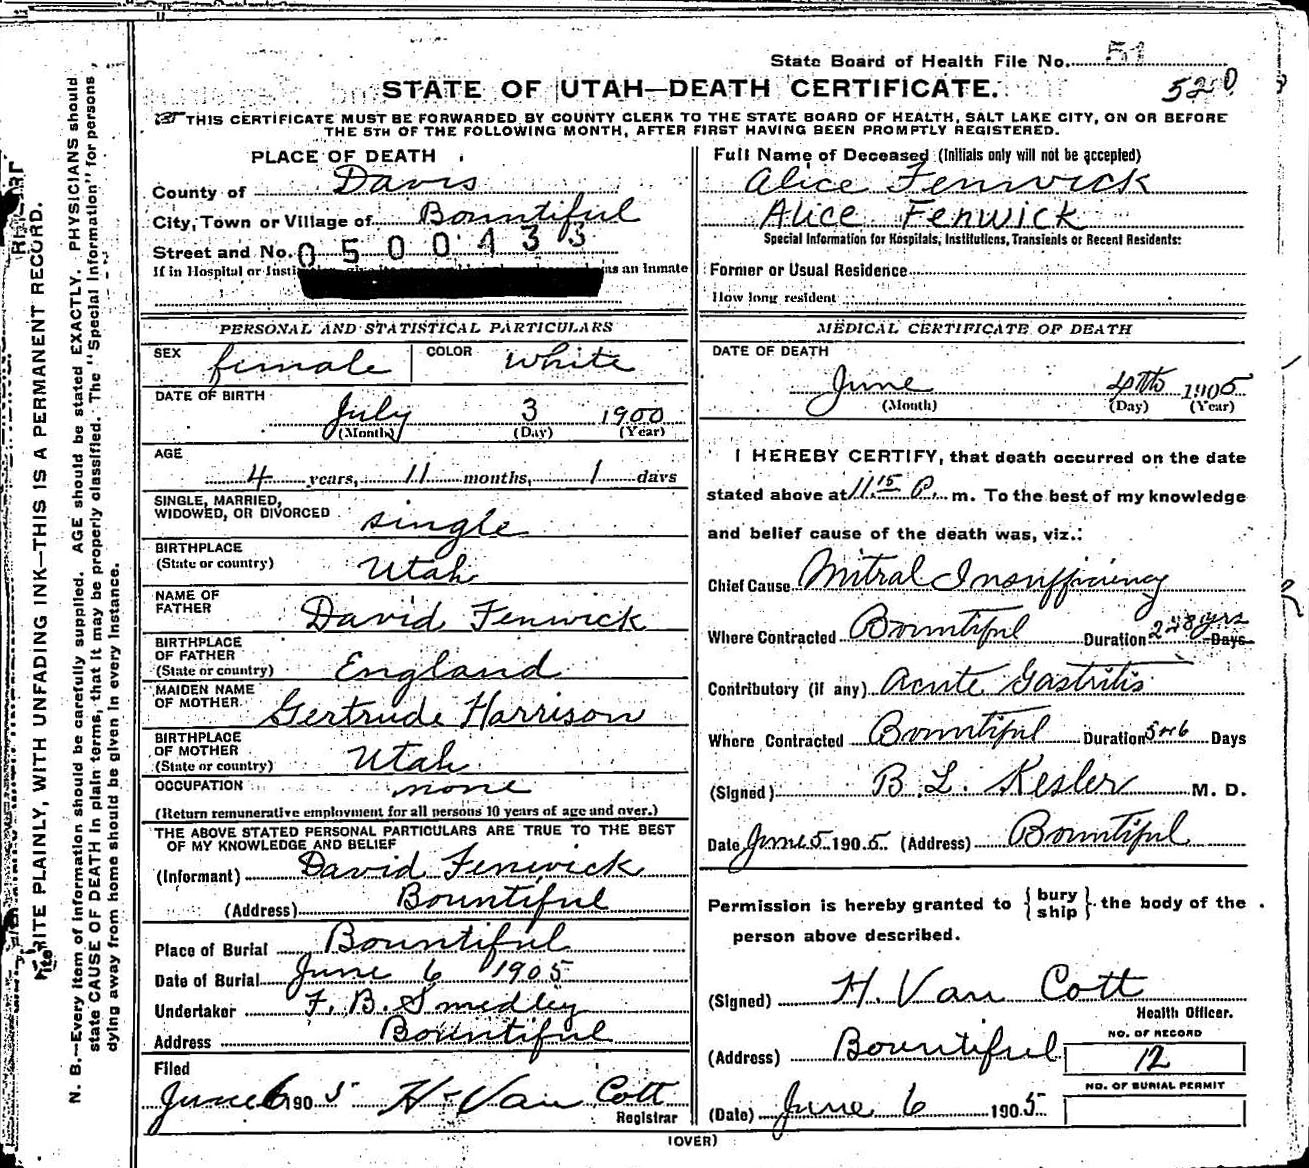 State Board of Health File No. 51
520
STATE OF UTAH—DEATH CERTIFICATE.
THIS CERTIFICATE MUST BE FORWARDED BY COUNTY CLERK TO THE STATE BOARD OF HEALTH, SALT LAKE CITY, ON OR BEFORE
THE 5TH OF THE FOLLOWING MONTH, AFTER FIRST HAVING BEEN PROMPTLY REGISTERED.
PLACE OF DEATH
County of Davis
City, Town or Village of Bountiful
Street and No. 0500433
If in Hospital or as an Inmate
PERSONAL AND STATISTICAL PARTICULARS
SEX female COLOR white
DATE OF BIRTH
July 3 1900
(Month) (Day) (Year)
AGE
4 years, 11 months, 1 days
SINGLE, MARRIED,
WIDOWED, OR DIVORCED single
BIRTHPLACE
(State or country) Utah
NAME OF
FATHER David Fenwick
BIRTHPLACE
OF FATHER
(State or country) England
MAIDEN NAME
OF MOTHER Gertrude Harrison
BIRTHPLACE
OF MOTHER
(State or country) Utah
OCCUPATION none
(Return remunerative employment for all persons 10 years of age and over.)
THE ABOVE STATED PERSONAL PARTICULARS ARE TRUE TO THE BEST
OF MY KNOWLEDGE AND BELIEF
(Informant) David Fenwick
(Address) Bountiful
Place of Burial Bountiful
Date of Burial June 6 1905
Undertaker F. B. Smedley
Address Bountiful
Filed
June 6 1905 H Van Cott
Registrar
Full Name of Deceased (Initials only will not be accepted)
Alice Fenwick
Alice Fenwick
Special Information for Hospitals, Institutions, Transients or Recent Residents:
Former or Usual Residence
How long resident
MEDICAL CERTIFICATE OF DEATH
DATE OF DEATH
June 4th 1905
(Month) (Day) (Year)
I HEREBY CERTIFY, that death occurred on the date
stated above at 11.15 P. m. To the best of my knowledge
and belief cause of the death was, viz.:
Chief Cause Mitral Insufficiency
Where Contracted Bountiful Duration yrs Days
Contributory (if any) Acute Gastritis
Where Contracted Bountiful Duration 5 or 6 Days
(Signed) B. L. Kesler M. D.
Date June 5 1905 (Address) Bountiful
Permission is hereby granted to {bury
ship} the body of the
person above described.
(Signed) H. Van Cott
Health Officer.
(Address) Bountiful
NO. OF RECORD
12
NO. OF BURIAL PERMIT
(Date) June 6 1905
(OVER)
WRITE PLAINLY, WITH UNFADING INK—THIS IS A PERMANENT RECORD.
N. B.—Every item of information should be carefully supplied. AGE should be stated EXACTLY. PHYSICIANS should
state CAUSE OF DEATH in plain terms, that it may be properly classified. The "Special Information" for persons
dying away from home should be given in every instance.